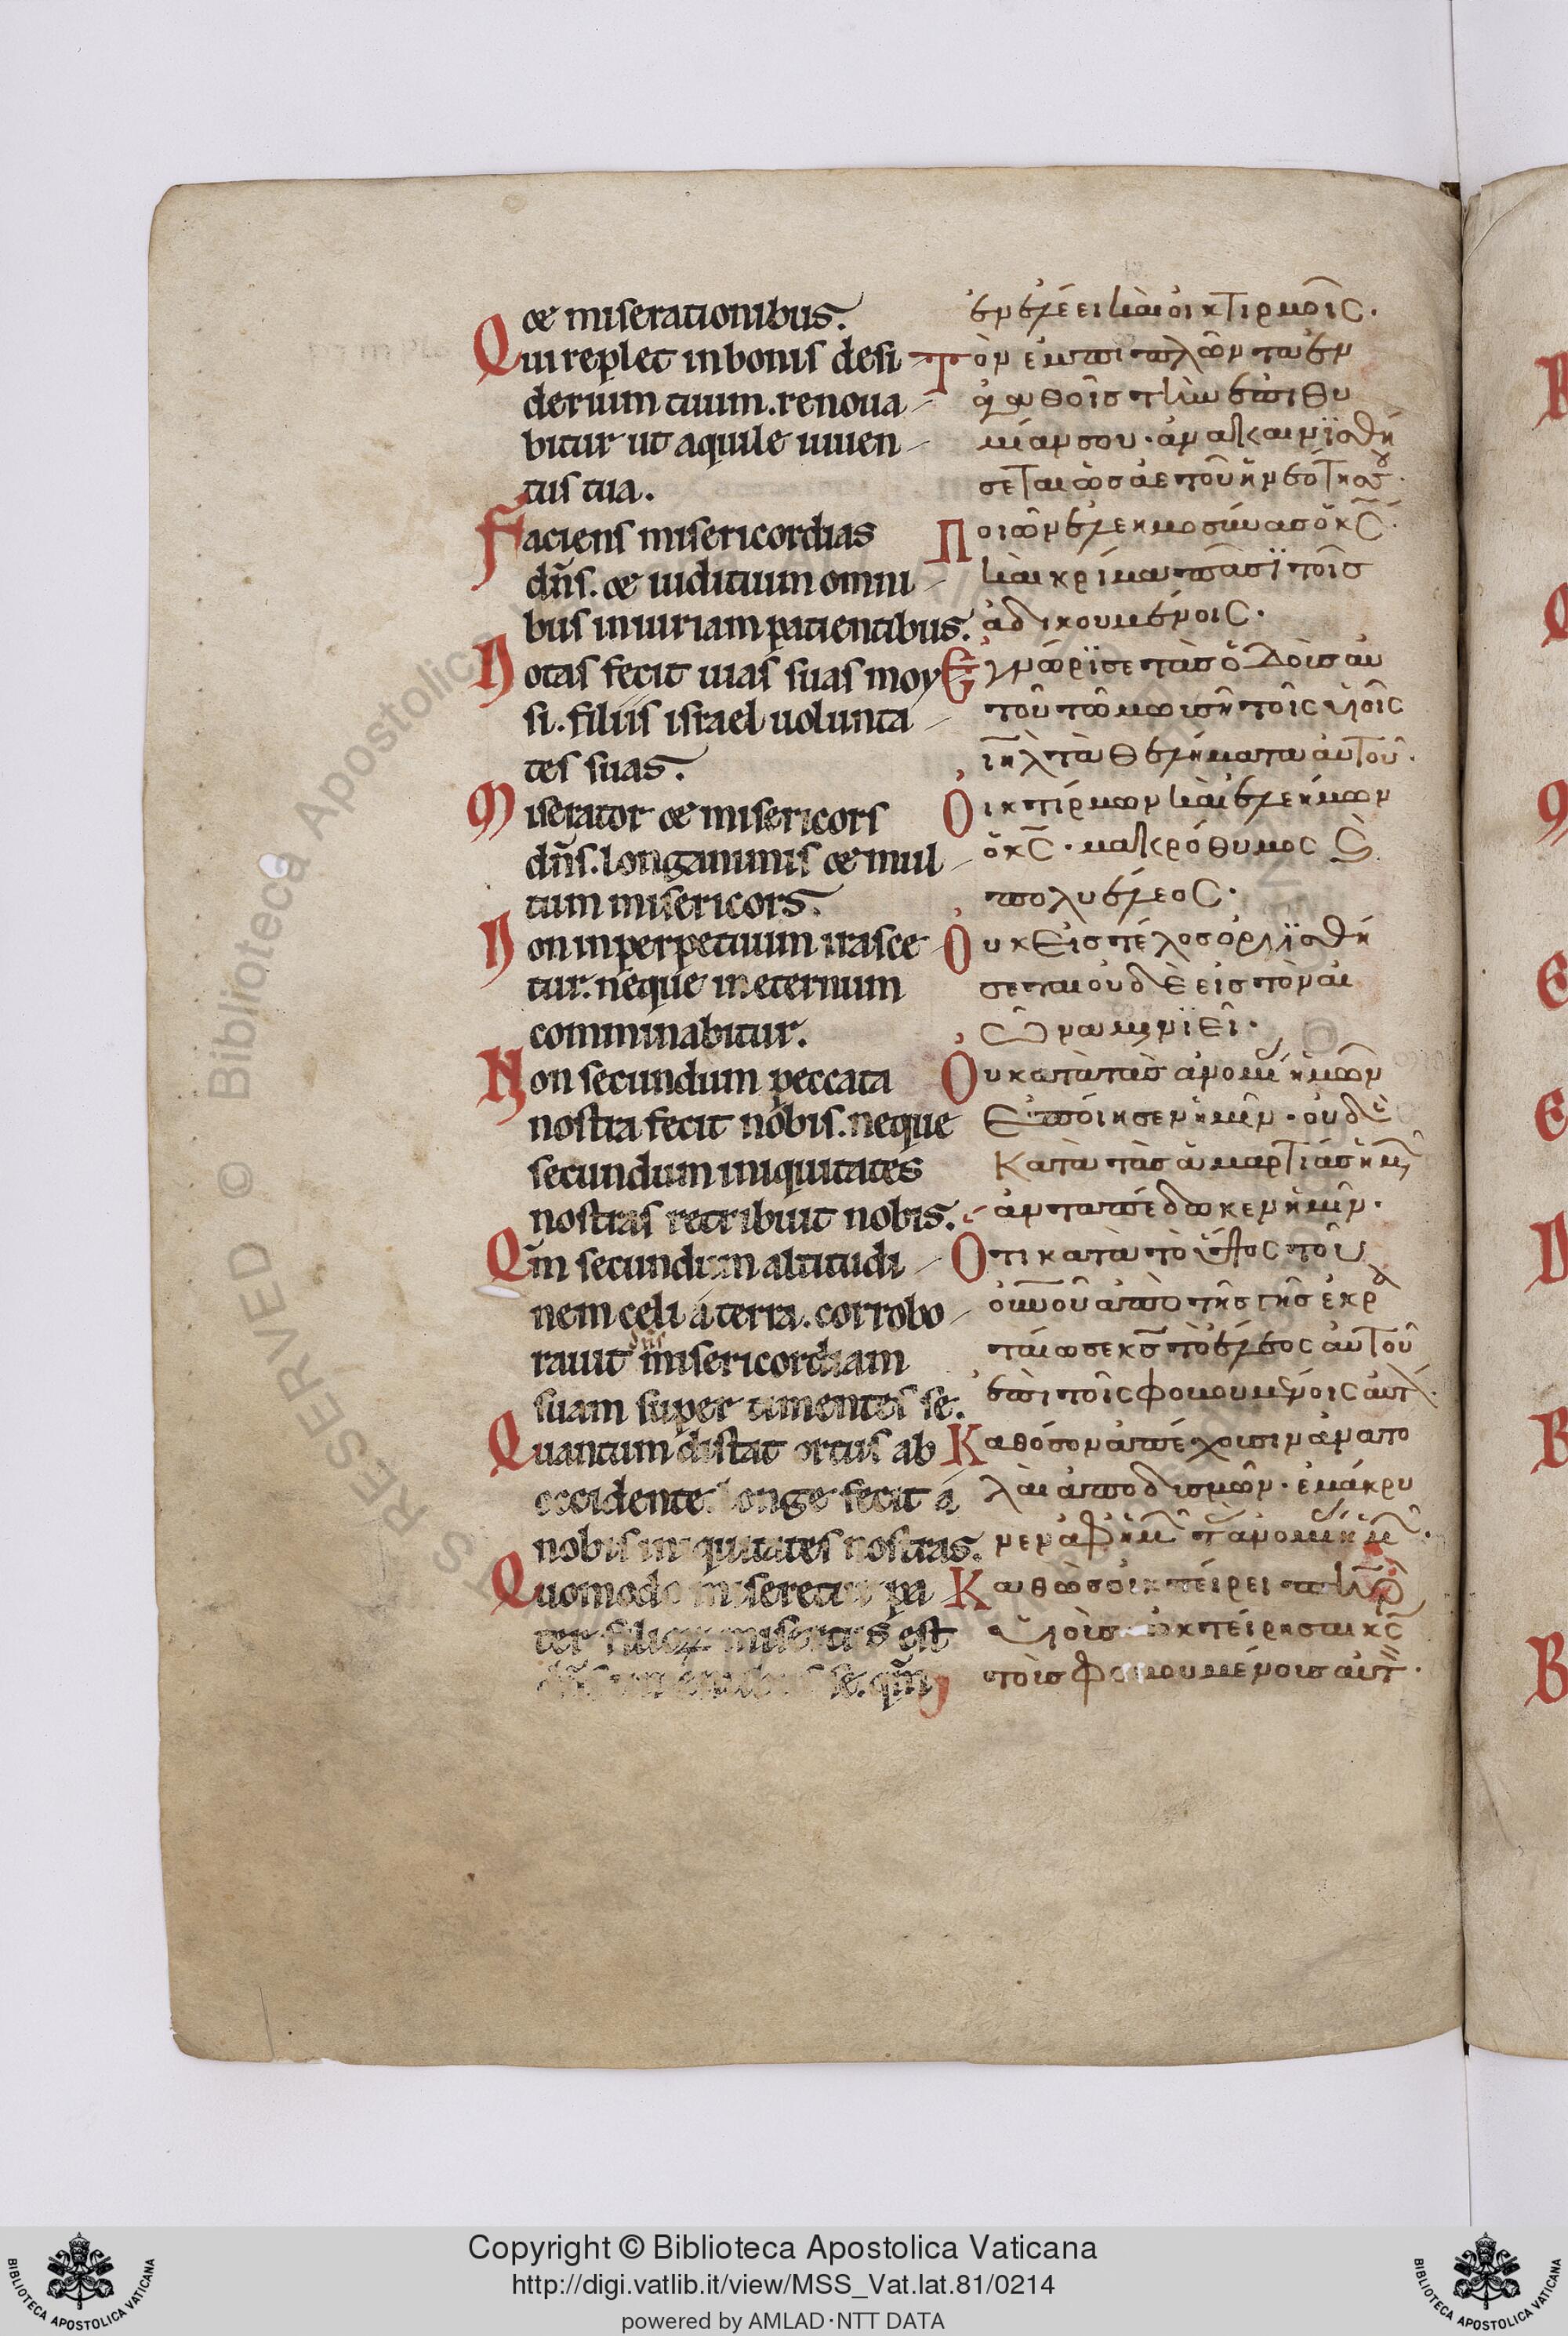 et miserationibus.
Qui replet in bonis desi
derium tuum. renoua
bitur ut aquile iuuen
tus tua.
Faciens misericordias
dn̄s. et iuditium omni
bus iniuriam patientibus.
Notas fecit uias suas moy
si. filiis israel uolunta
tes suas.
Miserator et misericors
dn̄s. longanimis et mul
tum misericors.
Non in perpetuum irasce
tur. neque in eternum
comminabitur.
Non secundum peccata
nostra fecit nobis. neque
secundum iniquitates
nostras retribuit nobis.
Qm̄ secundum altitudi
nem celi á terra. corrobo
dn̄s
rauit misericordiam
suam super timentes se.
Quantum distat ortus ab
occidente. longe fecit á
nobis iniquitates nostras.
Quomodo miseretur pa
ter filior misertus est
dn̄s timentibus se. qm̄
ἐν ἐλέει καὶ οἰκτιρμοῖς.
Τὸν ἐμπιπλῶντα ἐν
ἀγαθοῖς τὴν ἐπιθυ
μίαν σου. ἀνακαινϊσθή
σεται ὡς ἀετοῦ ἡ νεότης σου.
Ποιῶν ἐλεημοσύνας ὁ κς̄.
καὶ κρίμα πᾶσϊ τοῖς
ἀδικουμένοις.
Ἐγνώρϊσε τὰς ὁδοὺς αὐ
τοῦ τῶ μωισῆ τοῖς υἱοῖς
ιη̄λ τὰ θελήματα αὐτοῦ.
Ὀικτίρμων καὶ ἐλεήμων
ὁ κς̄. μακρόθυμος ϗ
πολυέλεος.
Ὀυκ εἰς τέλος ὀργϊσθή
σεται οὐδὲ εἰς τὸν αἰ
ῶνα μηνϊεῖ.
Ὀυ κατὰ τὰς ἀνομί ἡμῶν
ἐποίησεν ἡμῖν. οὐδὲ
κατὰ τὰς ἁμαρτίας ἡμ
ἀνταπέδωκεν ἡμῖν.
Οτι κατὰ τὸ ὕψος τοῦ
οὐν̄οῦ ἀπὸ τῆς γῆς ἐκρα
ταίωσε κς̄ τὸ ἔλεος αὐτοῦ
ἐπὶ τοῖς φοβουμένοις αὐτ.
Καθόσον ἀπέχουσιν ἀνατο
λαὶ ἀπὸ δισμῶν. ἐμάκρυ
νεν ἀφ ἡμ τ ἀνομί ἡμ.
Καθὼς οἰκτείρει π
υἱοὺς οἰκτείρησαι κς̄
τοὺς φοβουμένους αὐτ.
Copyright © Biblioteca Apostolica Vaticana
http://digi.vatlib.it/view/MSS_Vat.lat.81/0214
powered by AMLAD·NTT DATA
BIBLIOTECA APOSTOLICA VATICANA
BIBLIOTECA APOSTOLICA VATICANA